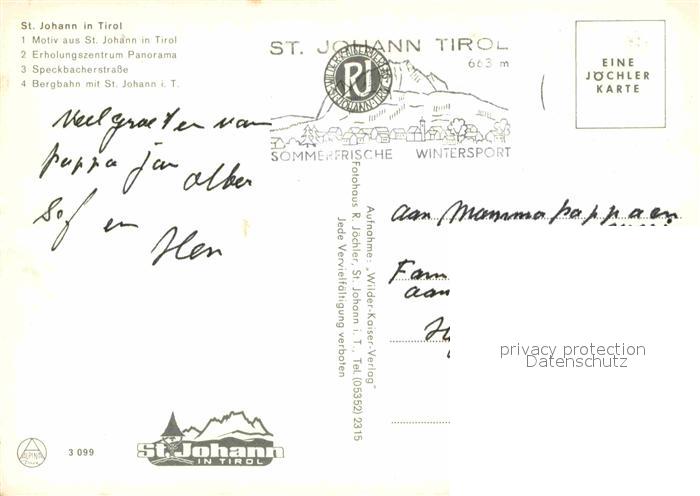 St. Johann in Tirol
1 Motiv aus St. Johann in Tirol
2 Erholungszentrum Panorama
3 Speckbacherstraße
4 Bergbahn mit St. Johann i. T.
ST. JOHANN TIROL
663 m
RJ
SOMMERFRISCHE WINTERSPORT
EINE
JÖCHLER
KARTE
Veel groeten van
pappa jan
Sof en
aan Mamma pappa en
Fam
aan
Aufnahme: „Wilder-Kaiser-Verlag"
Fotohaus R. Jöchler, St. Johann i. T., Tel. (05352) 2315
Jede Vervielfältigung verboten
privacy protection
Datenschutz
ALPINA
3 099
St. Johann
IN TIROL